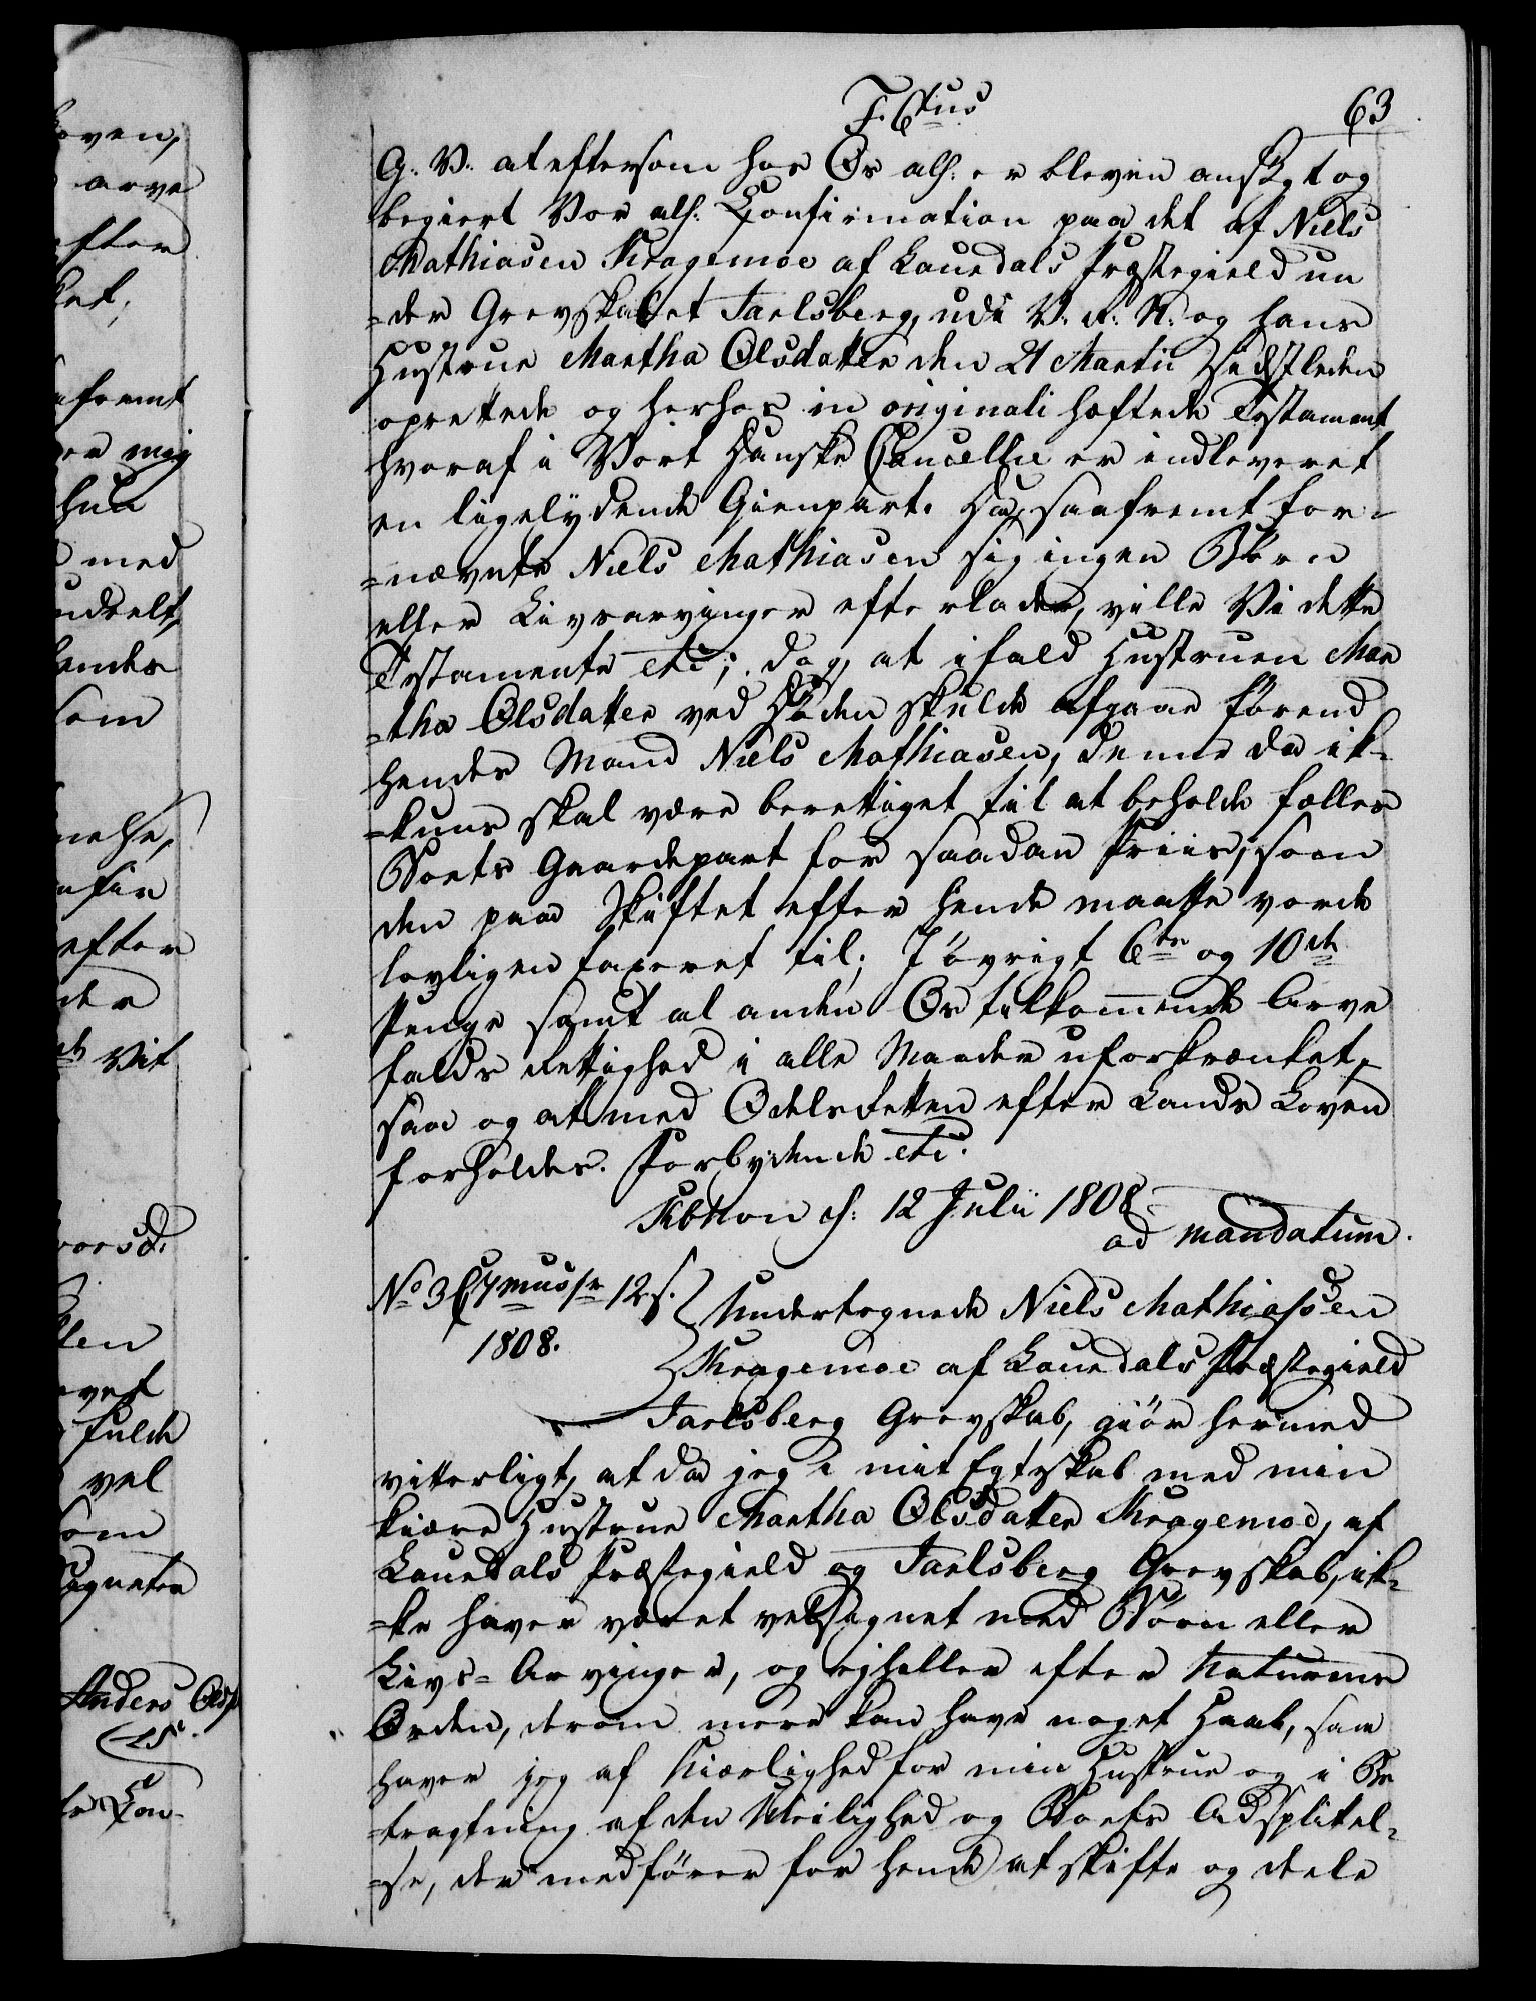 F. 6tus
63
G. V. at eftersom hos Os alh: er bleven ansögt og
begiert Vor alh: Confirmation paa det af Niels
Mathiasen Kragemoe af Laurdals Præstegield un
=der Grevskabet Jarlsberg, udi V. R. N: og hans
Hustrue Martha Olsdatter den 21 Martii sidstleden
oprettede og herhos in originali hæftede Testament
hvoraf i Vort Danske Cancellie er indleveret
en ligelydende Gienpart. Da, saafremt for-
=nævnte Niels Mathiasen sig ingen Börn
eller Livsarvinger efterlader, ville Vi dette
Testamente etc; dog, at ifald Hustruen Mar
=tha Olsdatter ved Döden skulde afgaae förend
hendes Mand Niels Mathiasen, denne da ik-
=kuns skal være berettiget til at beholde fælles
Boets Gaardepart for saadan Priis, som
den paa Skiftet efter hende maatte vorde
lovligen taxeret til; I övrigt 6te og 10de
Penge samt al anden Os tilkommende Arve
falds Rettighed i alle Maader uforkrænket,
saa og at med Odelsretten efter Lands Loven
forholdes. Forbydende etc.
Kbhavn d: 12 Julii 1808
ad mandatum.
No 3 12 s.
1808.
Undertegnede Niels Mathiassen
Kragemoe af Laurdals Præstegield
Jarlsberg Grevskab, giör hermed
vitterligt, at da jeg i mit Egteskab med min
kiære Hustrue Martha Olsdatter Kragemoe, af
Laurdals Præstegield og Jarlsberg Grevskab, ik-
=ke haver været velsignet med Börn eller
Livs=Arvinger, og ejheller efter Naturens
Orden, derom mere kan have noget Haab, saa
haver jeg af Kiærlighed for min Hustrue og i Be
=tragtning af den Uleilighed og Boets Adsplitel-
=se, der medförer for hende at skifte og deele